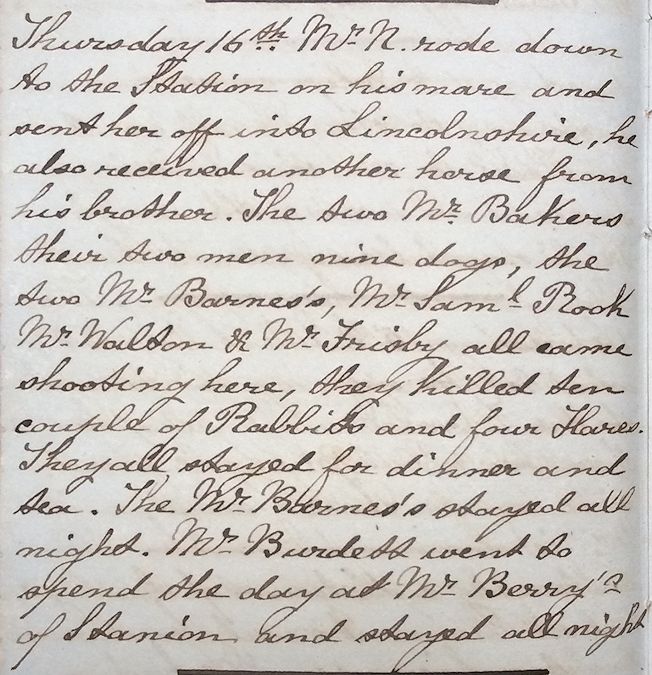 Thursday 16th. Mr. N. rode down
to the Station on his mare and
sent her off into Lincolnshire, he
also received another horse from
his brother. The two Mr. Bakers
their two men nine dogs, the
two Mr. Barnes's, Mr. Saml. Rook
Mr. Walton & Mr. Frisby all came
shooting here, they killed ten
couple of Rabbits and four Hares.
They all stayed for dinner and
tea. The Mr. Barnes's stayed all
night. Mr. Burdett went to
spend the day at Mr. Berry's
of Stanion and stayed all night